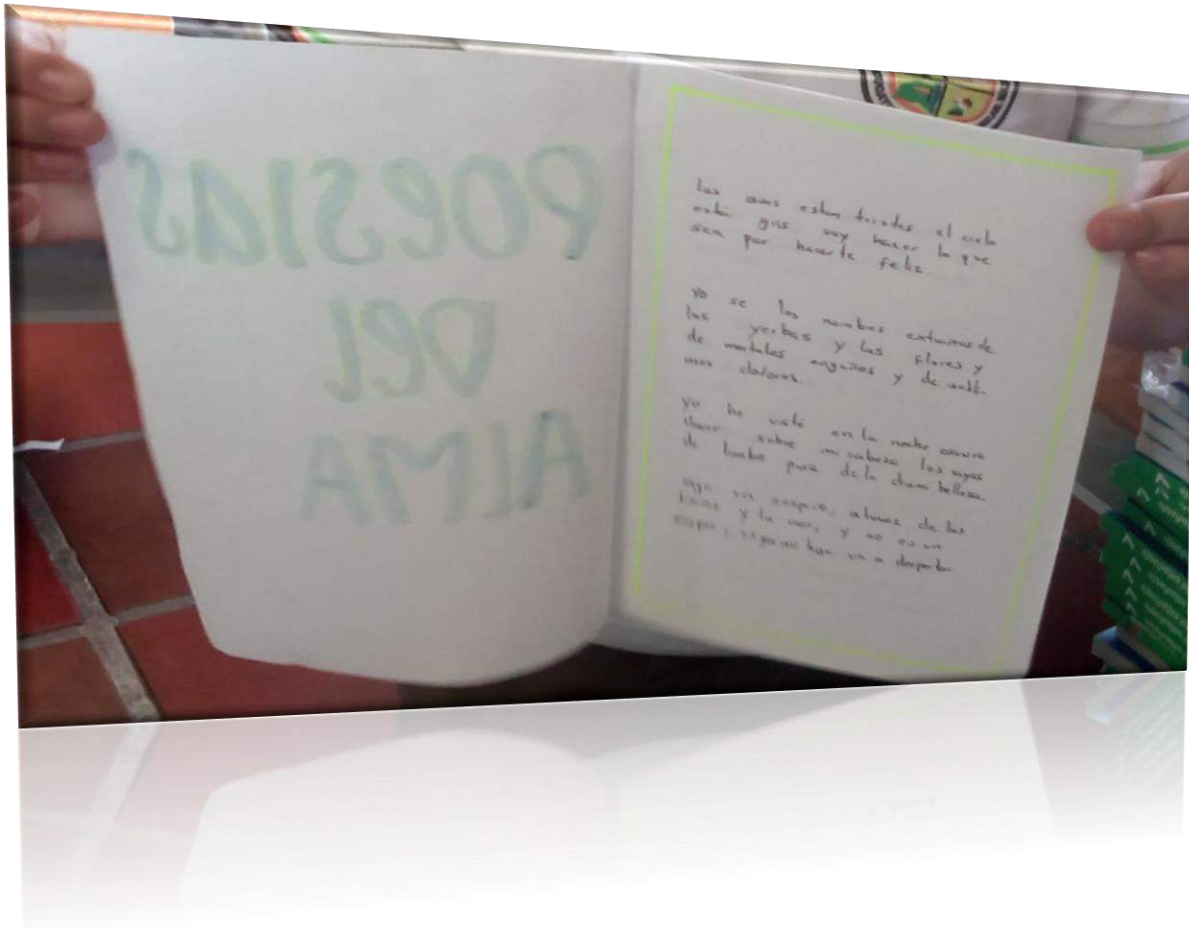 POESIAS
DEL
ALMA
las aves estan tristes el cielo
está gris voy hacer lo que
sea por hacerte feliz.
yo se los nombres extraños de
las yerbas y las flores y
de mortales engaños y de subli-
mes dolores.
yo he visto en la noche oscura
llover sobre mi cabeza los rayos
de lumbre pura de la divina belleza
oigo un suspiro, a través de las
tierras y la mar, y no es un
suspiro, es que mi hijo va a despertar.